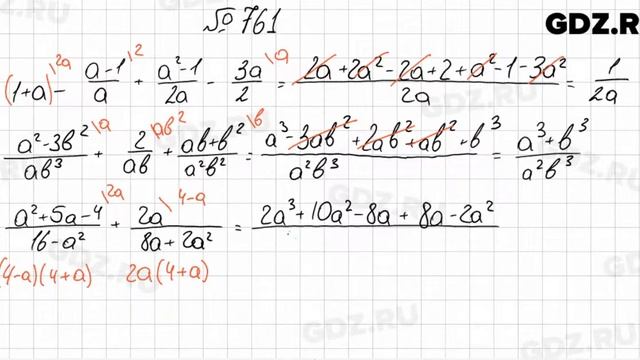 № 761
GDZ.R
(1+a)\2a - a-1/a\2 + a²-1/2a - 3a/2\a = 2a+2a²-2a+2+a²-1-3a²/2a = 1/2a
a²-3b²/ab³\a + 2/ab\ab² + ab+b²/a²b²\b = a³-3ab²+2ab²+ab²+b³/a²b³ = a³+b³/a²b³
a²+5a-4/16-a²\2a + 2a/8a+2a²\4-a = 2a³+10a²-8a+8a-2a²
(4-a)(4+a) 2a(4+a)
GDZ.RU